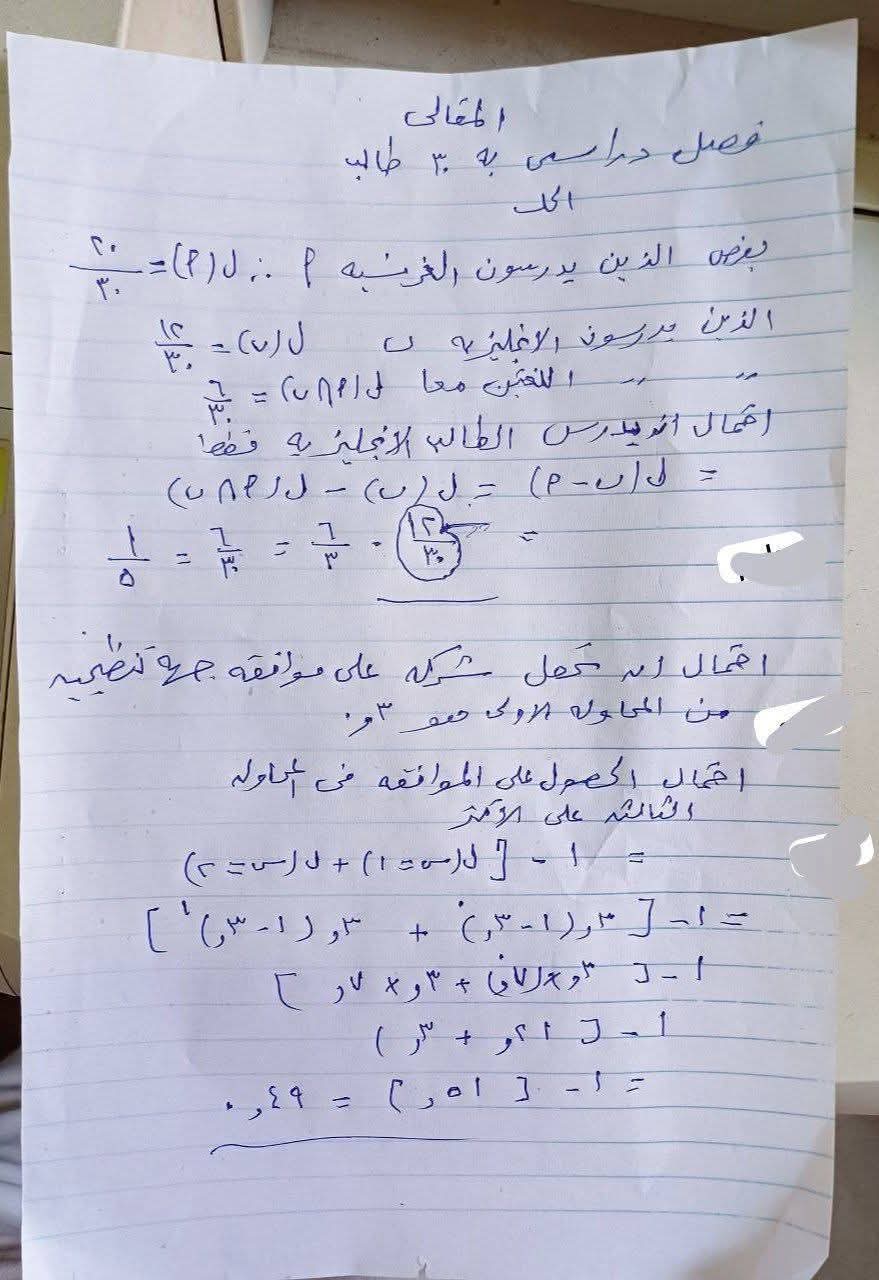 المقالى
فصل دراسى به ٣٠ طالب
الحل
بفرض الذين يدرسون الفرنسيه P ∴ ل(P) = ٢٠/٣٠
الذين يدرسون الانجليزيه ب ل(ب) = ١٢/٣٠
〃 〃 اللغتين معا ل(P∩ب) = ٦/٣٠
احتمال ان يدرس الطالب الانجليزيه فقط
= ل(ب-P) = ل(ب) - ل(P∩ب)
= ١٢/٣٠ - ٦/٣ = ٦/٣٠ = ١/٥
احتمال ان تحصل شركه على موافقه جهه تنظيميه
من المحاوله الاولى هو ٣و٠
احتمال الحصول على الموافقه فى المحاوله
الثالثه على الأكثر
= ١ - [ل(س=١) + ل(س=٢)
= ١ - [٣و(١-٣و)٠ + ٣و(١-٣و)١]
١ - [٣و×(٧و)٠ + ٣و × ٧و]
١ - [٢١و + ٣و)
= ١ - [٥١و] = ٤٩و٠